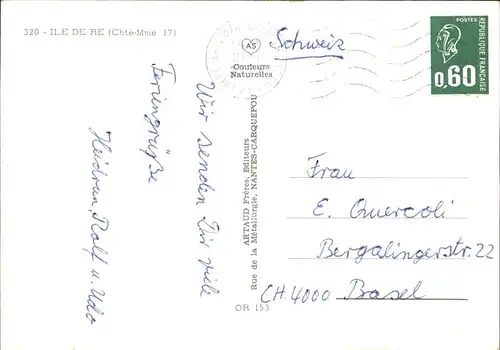 320 - ILE DE RE (Chte-Mme 17)
AS
Couleurs
Naturelles
Schweiz
POSTES
REPUBLIQUE FRANÇAISE
0,60
Wir senden Dir viele
Feriengrüße
Heidrun, Rolf u. Udo
ARTAUD Frères, Editeurs
Rue de la Métallurgie, NANTES-CARQUEFOU
OR 153
Frau
E. Quercoli
Bergalingerstr. 22
CH. 4000 Basel